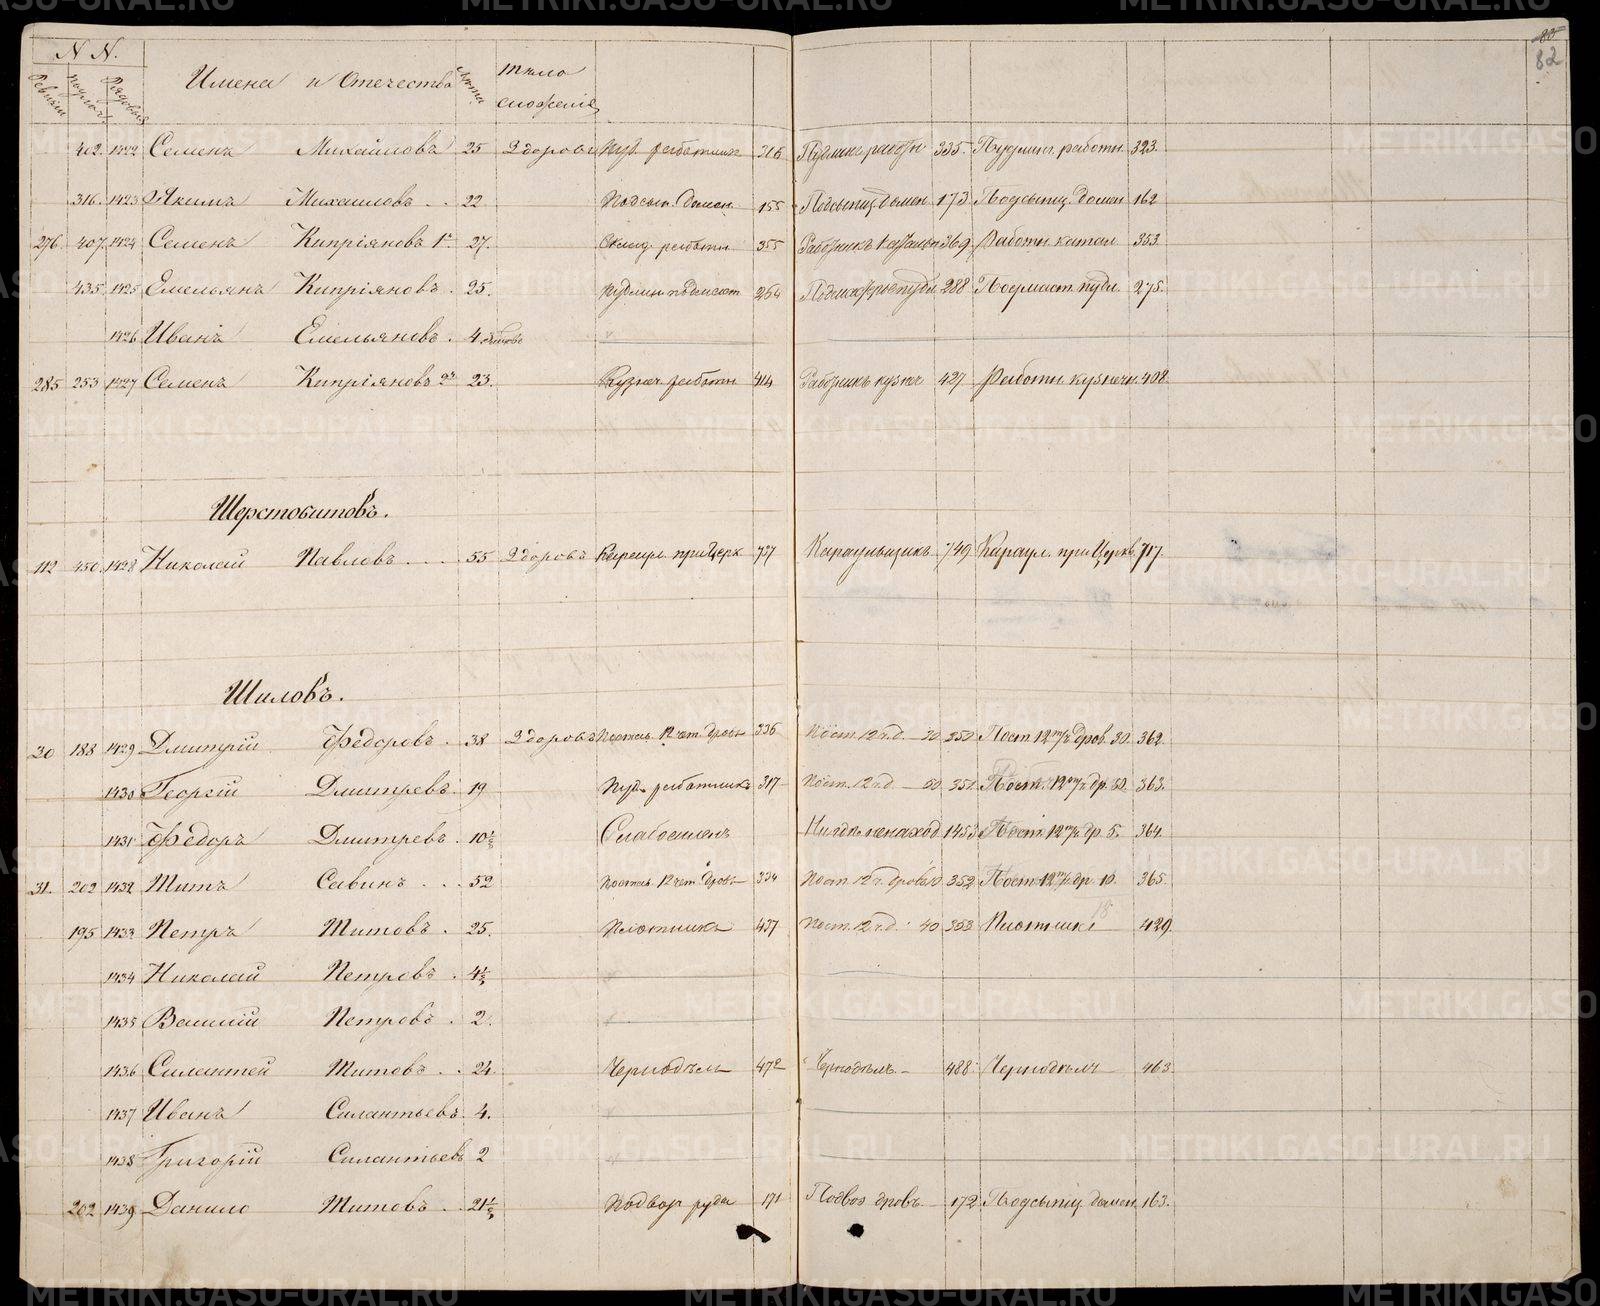 82
N N.
Имена и Отечества лѣта тѣло
сложенія
402. 1422 Семенъ Михайловъ 25 Здоровъ Пуд. работникъ 316 335. Пудлинг. работн. 323.
316. 1423 Якимъ Михайловъ . . 22 Подсып. домен. 155 Подсыпщ. домен 173 Подсыпщ. домен 162
276 407. 1424 Семенъ Кипріяновъ 1й 27. Склад. работн 355 369 Работн. катал. 353.
435. 1425 Емельянъ Кипріяновъ. 25. 264 288 Подмаст. пудл. 275.
1426 Иванъ Емельяновъ. 4
285 253 1427 Семенъ Кипріяновъ 2й 23. Кузнеч. работн 414 Работникъ кузнеч 427 Работн. кузнечн. 408.
Шерстобитовъ.
112 450. 1428 Николай Павловъ . . . . 55 Здоровъ Караул. при Церк 737 Караульщикъ 749 Караул. при Церквѣ 717.
Шиловъ.
30 188 1429 Дмитрій Ѳедоровъ. 38 Здоровъ Постав. 12 чет. дровъ 336 Пост. 12 ч. д. 30 350 Пост. 12 ч. дров. 30. 362.
1430 Георгій Дмитревъ. 19 Пуд. работникъ 317 Пост. 12 ч. д. — 50 351. Пост. 12 др. 50. 363.
1431 Ѳедоръ Дмитревъ. 10½ Слабосиленъ Нигдѣ ненаход 1453 Пост. 12 др. 5. 364.
31. 202 1432 Титъ Савинъ . . . 52 Постав. 12 чет. дровъ 334 Пост. 12 ч. дровъ 10 352 Пост. 12 др. 10. 365.
195 1433 Петръ Титовъ . 25. Плотникъ 437 Пост. 12 ч. д. 40 353 Плотникъ 429.
1434 Николай Петровъ . 4½
1435 Василій Петровъ . 2.
1436 Силантей Титовъ . . 24. Чернодѣл 472 Чернодѣлъ — 488. Чернодѣлъ 463.
1437 Иванъ Силантьевъ. 4.
1438 Григорій Силантьевъ 2
202 1439 Данило Титовъ . . 21½ Подвоз руды 171 Подвоз дровъ — 172 Подсыпщ. домен. 163.
METRIKI.GASO-URAL.RU